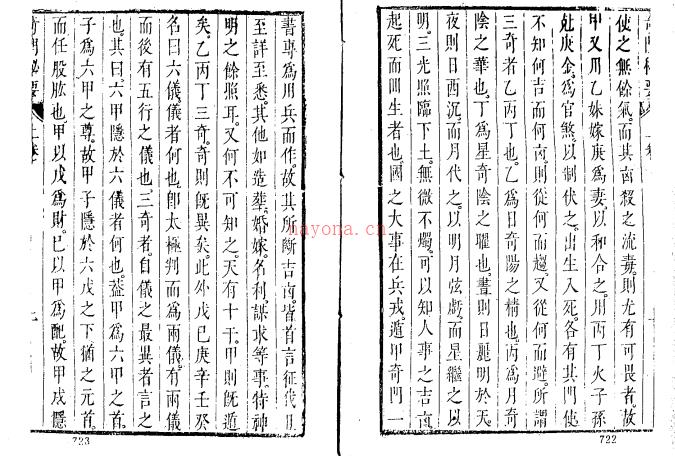 使之無餘氣而其凶殺之流毒則尤有可畏者故
甲又用乙妹嫁庚為妻以和合之用丙丁火子孫
尅庚金為官煞以制伏之出生入死各有其門使
不知何吉而何凶則從何而趨又從何而避所謂
三奇者乙丙丁也乙為日奇陽之精也丙為月奇
陰之華也丁為星奇陰之耀也晝則日麗明於天
夜則日西沉而月代之以明月弦虧而星繼之以
明三光照臨下土無微不燭可以知人事之吉凶
起死而回生者也國之大事在兵戎遁甲奇門一
722
書專為用兵而作故其所斷吉凶皆首言征伐用
至詳至悉其他如造塟婚嫁名利謀求等事特神
明之餘照耳又何不可知之天有十干甲則既遁
矣乙丙丁三奇奇則既異矣此外戊己庚辛壬癸
名曰六儀儀者何也卽太極判而為兩儀有兩儀
而後有五行之儀也三奇者自儀之最異者言之
也其曰六甲隱於六儀者何也葢甲為六甲之首
子為六甲之尊故甲子隱於六戊之下猶之元首
而任股肱也甲以戊為財己以甲為配故甲戌隱
上卷
723
nayona.cn